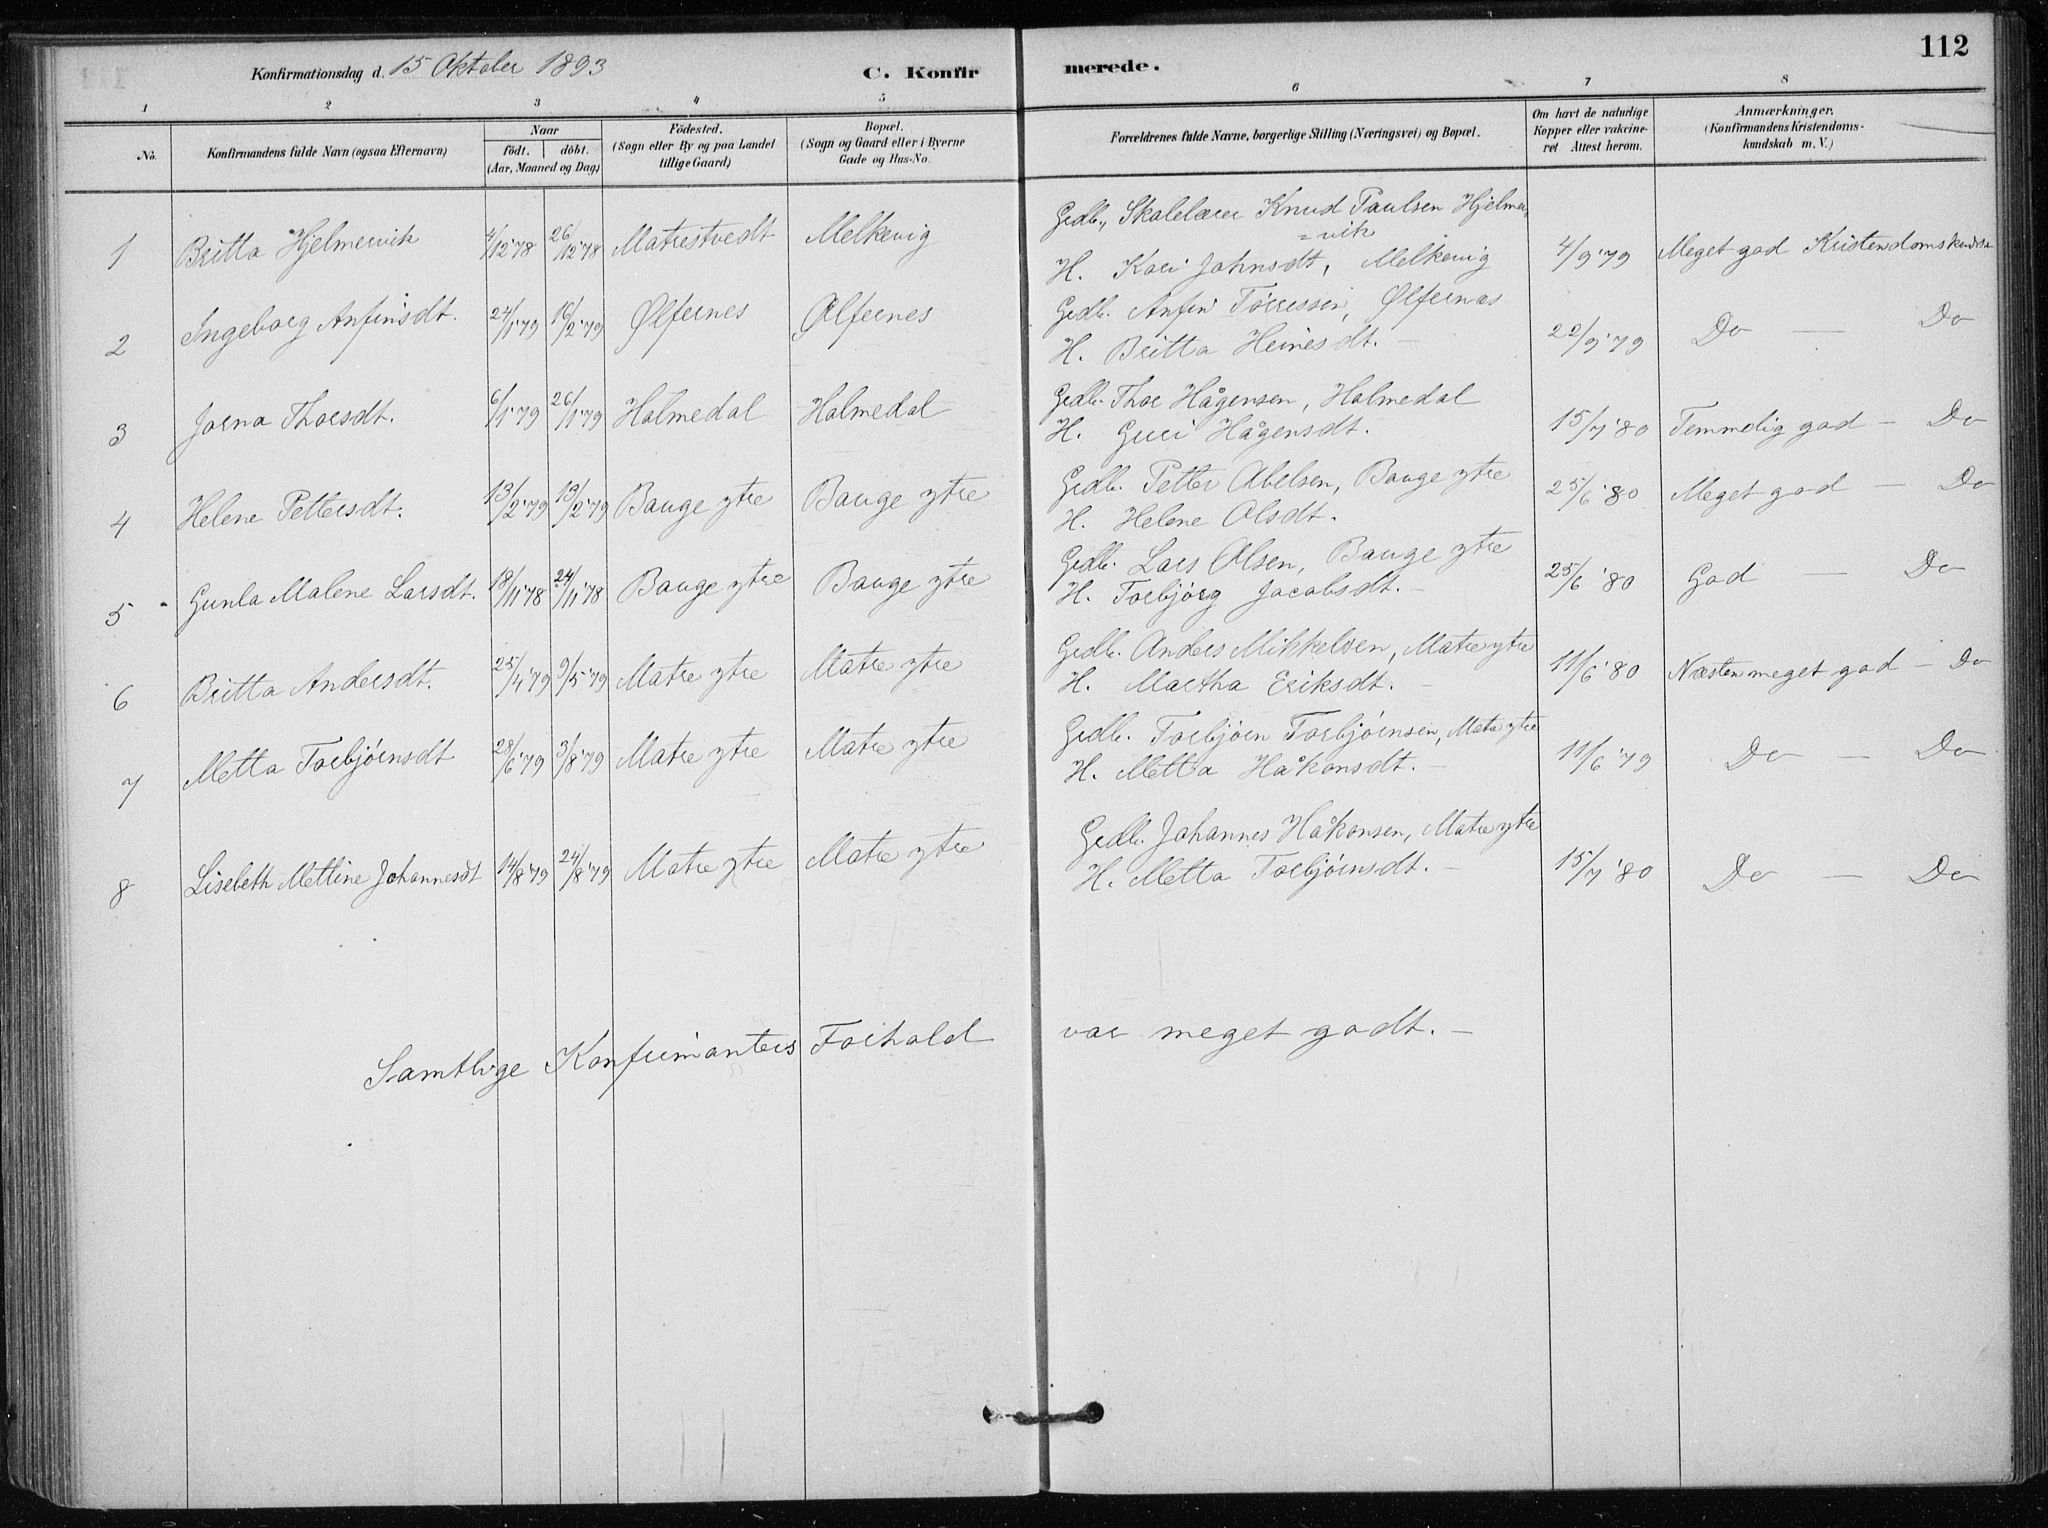 112
Konfirmationsdag d. 15 Oktober 1893 C. Konfirmerede.
1 2 3 4 5 6 7 8
No. Konfirmandens fulde Navn (ogsaa Efternavn) Naar født. døbt. (Aar, Maaned og Dag) Födested. (Sogn eller By og paa Landet tillige Gaard) Bopæl. (Sogn og Gaard eller i Byerne Gade og Hus-No. Forældrenes fulde Navne, borgerlige Stilling (Næringsvei) og Bopæl. Om havt de naturlige Kopper eller vakcineret Attest herom. Anmærkninger. (Konfirmandens Kristendomskundskab m. V.)
1 Britta Hjelmervik 4/12 '78 26/12 '78 Matrestvedt Melkevig Grdbr., Skolelærer Knud Paulsen Hjelmer=vik
H. Kari Johnsdt, Melkevig 4/9 '79 Meget god Kristendomskundsk
2 Ingeborg Anfinsdt. 24/1 '79 16/2 '79 Ølfernes Ølfernes Grdbr. Anfin Tørressen, Ølfernas
H. Britta Heinesdt. - 22/9 '79 Do — Do
3 Jorna Thorsdt. 6/1 '79 26/1 '79 Holmedal Holmedal Grdbr. Thor Hågensen, Holmedal
H. Guri Hågensdt. 15/7 '80 Temmelig god - Do
4 Helene Pettersdt. 13/2 '79 13/2 '79 Bauge ytre Bauge ytre Grdbr. Petter Abelsen, Bauge ytre
H. Helene Olsdt. 25/6 '80 Meget god - Do
5 Gunla Malene Larsdt. 18/11 '78 24/11 '78 Bauge ytre Bauge ytre Grdbr. Lars Olsen, Bauge ytre
H. Torbjørg Jacobsdt. - 25/6 '80 God — Do
6 Britta Andersdt. 25/4 '79 9/5 '79 Matre ytre Matre ytre Grdbr. Anders Mikkelsen, Matre ytre
H. Martha Eriksdt. - 11/6 '80 Næsten meget god - Do
7 Metta Torbjørnsdt 28/6 '79 3/8 '79 Matre ytre Matre ytre Grdbr. Torbjørn Torbjørnsen, Matre ytre
H. Metta Håkonsdt. - 11/6 '79 Do — Do
8 Lisebeth Mettine Johannesdt 14/8 '79 24/8 '79 Matre ytre Matre ytre Grdbr. Johannes Håkonsen, Matre ytre
H. Metta Torbjørnsdt. - 15/7 '80 Do — Do
Samtlige Konfirmanters Forhold var meget godt. -